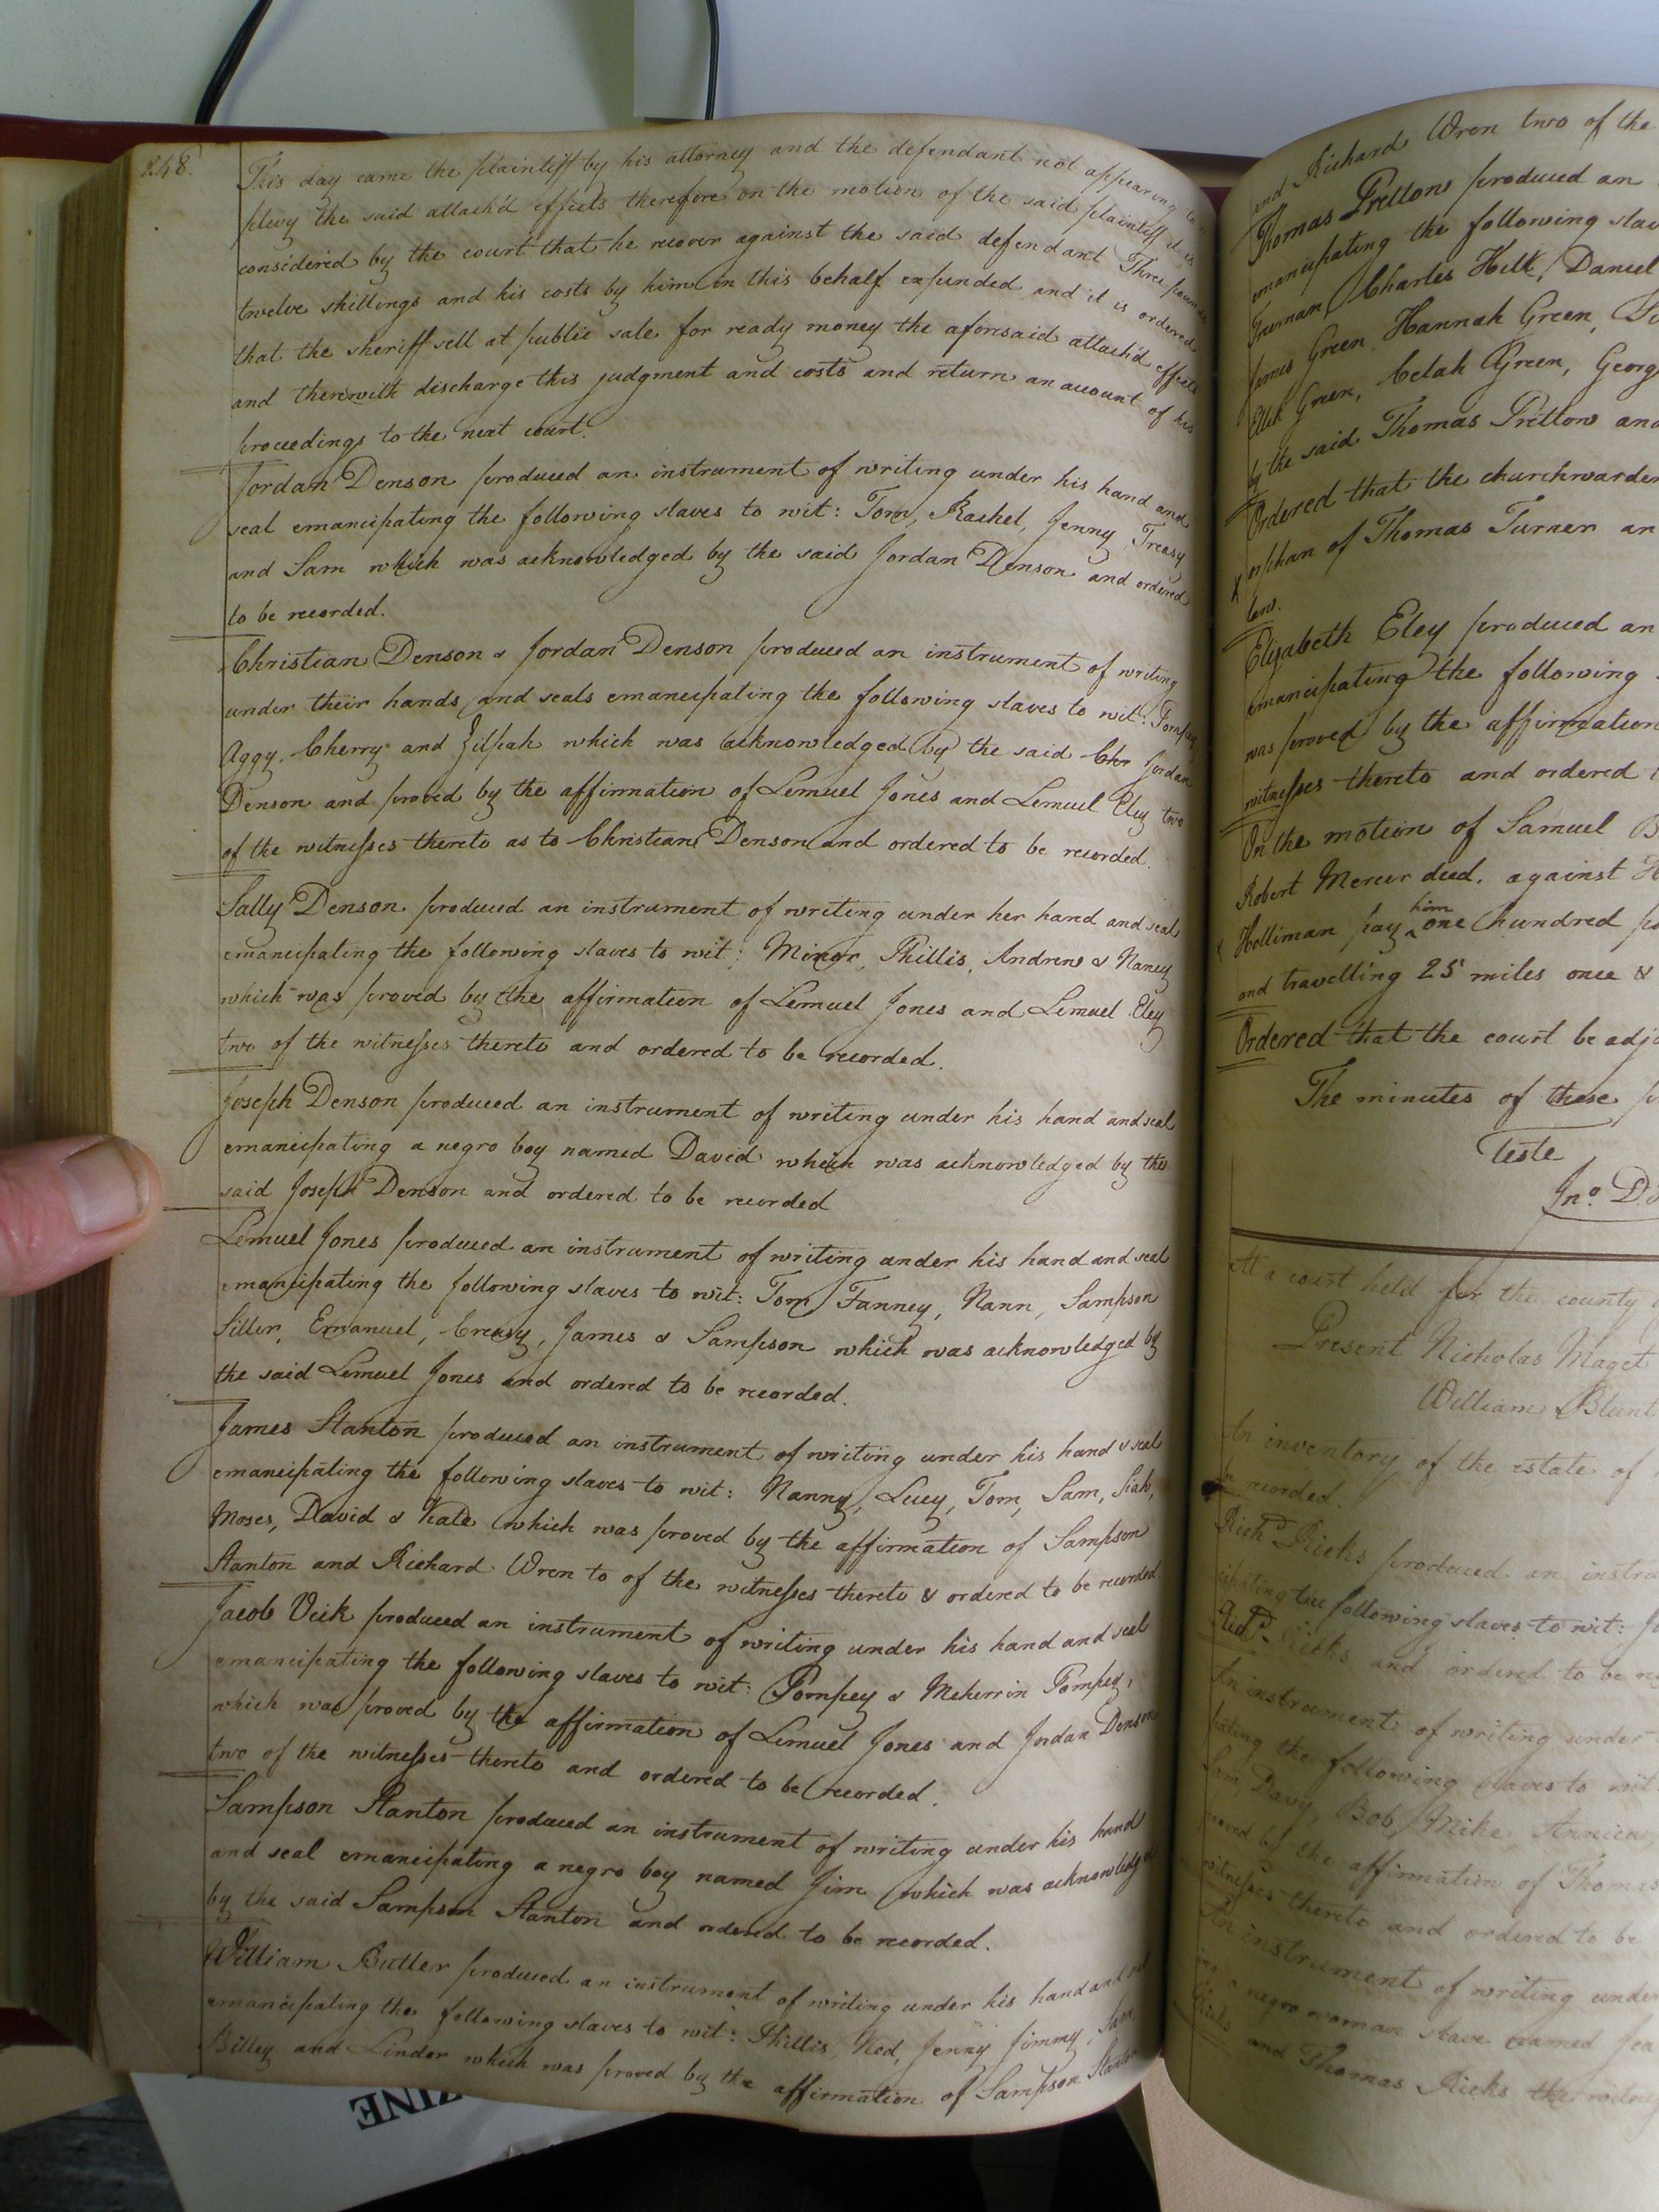 248.
This day came the plaintiff by his attorney and the defendant not appearing to re
plevy the said attach'd effects therefore on the motion of the said plaintiff it is
considered by the court that he recover against the said defendant Three pounds
twelve shillings and his costs by him in this behalf expended and it is ordered
that the sheriff sell at public sale for ready money the aforesaid attach'd effects
and therewith discharge this judgment and costs and return an account of his
proceedings to the next court.
Jordan Denson produced an instrument of writing under his hand and
seal emancipating the following slaves to wit: Tom, Rachel, Jenny, Treasy
and Sam which was acknowledged by the said Jordan Denson and ordered
to be recorded.
Christian Denson & Jordan Denson produced an instrument of writing
under their hands and seals emancipating the following slaves to wit: Pompey
Aggy, Cherry and Zilpah which was acknowledged by the said Chr Jordan
Denson and proved by the affirmation of Lemuel Jones and Lemuel Eley two
of the witnesses thereto as to Christian Denson and ordered to be recorded.
Sally Denson produced an instrument of writing under her hand and seal
emancipating the following slaves to wit: Minor, Phillis, Andrew & Nancy
which was proved by the affirmation of Lemuel Jones and Lemuel Eley
two of the witnesses thereto and ordered to be recorded.
Joseph Denson produced an instrument of writing under his hand and seal
emancipating a negro boy named David which was acknowledged by the
said Joseph Denson and ordered to be recorded
Lemuel Jones produced an instrument of writing under his hand and seal
emancipating the following slaves to wit: Tom, Fanney, Nann, Sampson
Siller, Emanuel, Creasy, James & Sampson which was acknowledged by
the said Lemuel Jones and ordered to be recorded.
James Stanton produced an instrument of writing under his hand & seal
emancipating the following slaves to wit: Nanny, Lucy, Tom, Sam, Siah,
Moses, David & Kate which was proved by the affirmation of Sampson
Stanton and Richard Wren to of the witnesses thereto & ordered to be recorded
Jacob Vick produced an instrument of writing under his hand and seal
emancipating the following slaves to wit: Pompey & Meherrin Pompey,
which was proved by the affirmation of Lemuel Jones and Jordan Denson
two of the witnesses thereto and ordered to be recorded.
Sampson Stanton produced an instrument of writing under his hand
and seal emancipating a negro boy named Jim which was acknowledged
by the said Sampson Stanton and ordered to be recorded.
William Butler produced an instrument of writing under his hand and seal
emancipating the following slaves to wit: Phillis, Ned, Jenny Jimmy, Sam,
Billey and Linder which was proved by the affirmation of Sampson Stanton
and Richard Wren two of the
Thomas Pretlow produced an
emancipating the following slav
Furman, Charles Hill, Daniel
James Green Hannah Green,
Elick Green, Celah Green, Georg
by the said Thomas Pretlow and
Ordered that the churchwarden
orphan of Thomas Turner an
law.
Elizabeth Eley produced an
emancipating the following
was proved by the affirmation
witnesses thereto and ordered
On the motion of Samuel B
Robert Mercer decd. against H
Holliman pay him one hundred po
and travelling 25 miles once &
Ordered that the court be adjo
The minutes of these p
Teste
Jno. D
At a court held for the county
Present Nicholas Maget
William Blunt
An inventory of the estate of
be recorded.
Richd Ricks produced an instru
cipating the following slaves to wit:
Richd Ricks and ordered to be re
An instrument of writing under
pating the following slaves to wit
Sam, Davy, Bob, Mike,
proved by the affirmation of Thomas
witnesses thereto and ordered to be
An instrument of writing under
ing a negro woman slave named
Ricks and Thomas Ricks the witne
ZINE